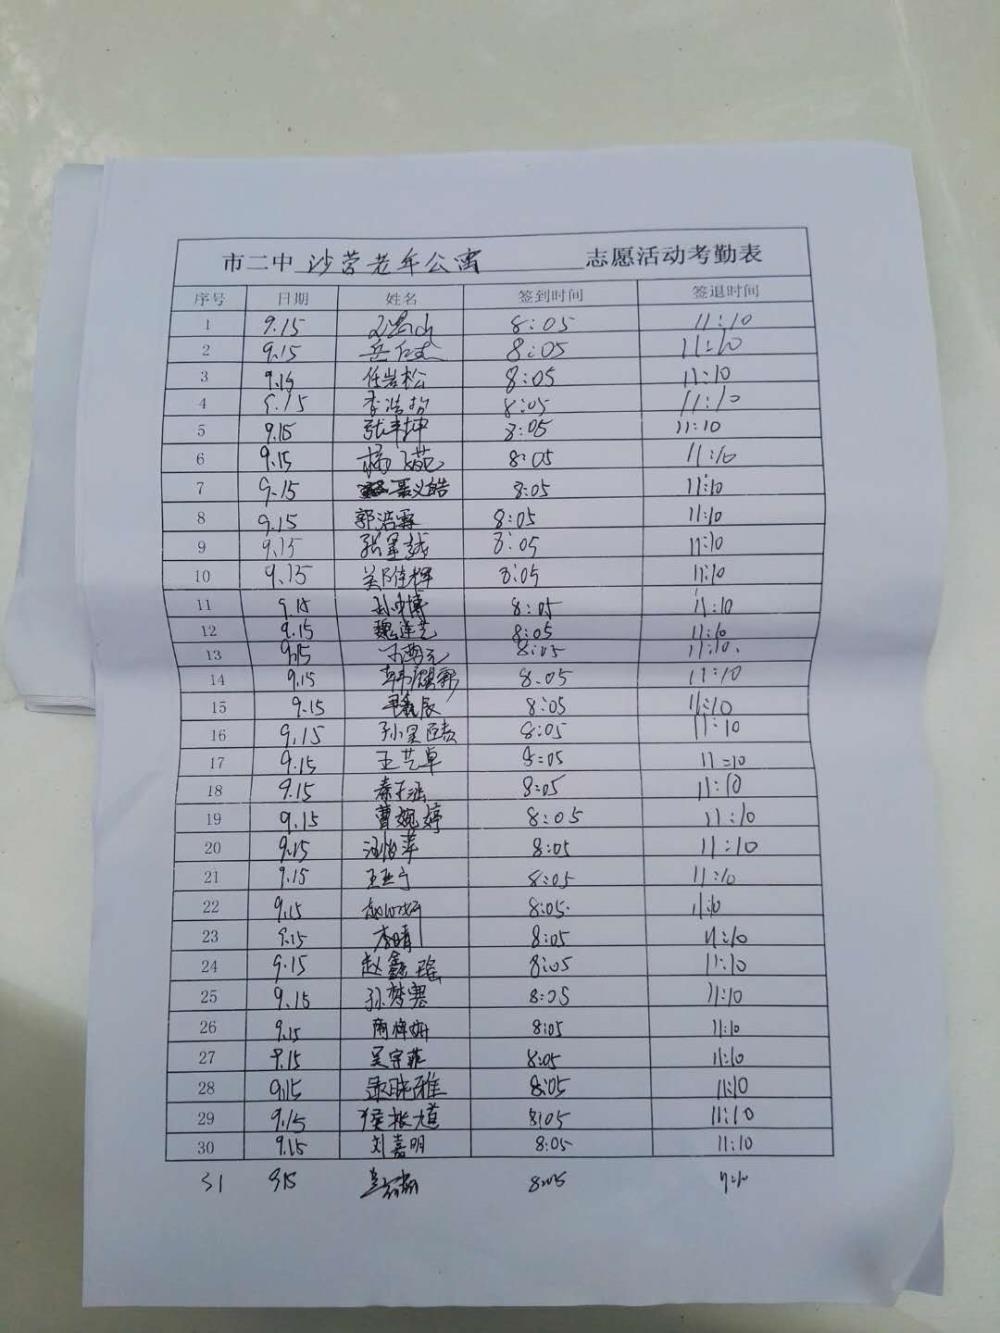 市二中 沙营老年公寓 志愿活动考勤表
序号 日期 姓名 签到时间 签退时间
1 9.15 8:05 11:10
2 9.15 8:05 11:10
3 9.15 任岩松 8:05 11:10
4 9.15 李浩 8:05 11:10
5 9.15 张丰坤 8:05 11:10
6 9.15 杨飞苑 8:05 11:10
7 9.15 聂义皓 8:05 11:10
8 9.15 郭浩霖 8:05 11:10
9 9.15 8:05 11:10
10 9.15 8:05 11:10
11 9.15 8:05 11:10
12 9.15 魏莲芝 8:05 11:10
13 9.15 8:05 11:10.
14 9.15 8.05 11:10
15 9.15 8:05 11:10
16 9.15 8:05 11:10
17 9.15 王艺卓 8:05 11=10
18 9.15 8:05 11:10
19 9.15 曹婉婷 8:05 11:10
20 9.15 汪怡萍 8:05 11:10
21 9.15 8:05 11:10
22 9.15 8:05. 11:10
23 9.15 李晴 8:05 11:10
24 9.15 赵鑫瑶 8:05 11:10
25 9.15 孙梦赛 8:05 11:10
26 9.15 8:05 11:10
27 9.15 吴宇菲 8:05 11:10
28 9.15 8:05 11:10
29 9.15 8:05 11:10
30 9.15 刘嘉明 8:05 11:10
31 9.15 8:05 11:10